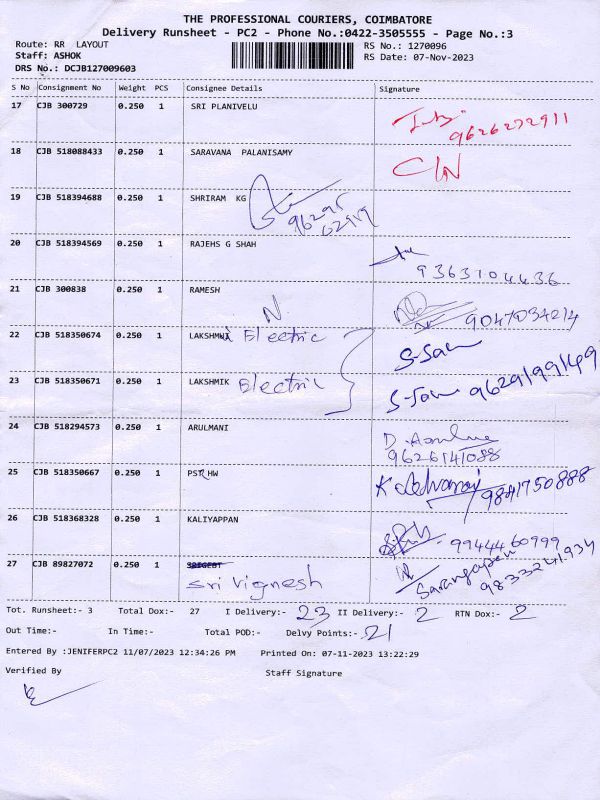 THE PROFESSIONAL COURIERS, COIMBATORE
Delivery Runsheet - PC2 - Phone No.:0422-3505555 - Page No.:3
Route: RR LAYOUT RS No.: 1270096
Staff: ASHOK RS Date: 07-Nov-2023
DRS No.: DCJB127009603
S No Consignment No Weight PCS Consignee Details Signature
17 CJB 300729 0.250 1 SRI PLANIVELU
9626272911
18 CJB 518088433 0.250 1 SARAVANA PALANISAMY
19 CJB 518394688 0.250 1 SHRIRAM KG
96295
62919
20 CJB 518394569 0.250 1 RAJEHS G SHAH
9363104436
21 CJB 300838 0.250 1 RAMESH
N 9047034214
22 CJB 518350674 0.250 1 LAKSHMI Electric S-Sam
23 CJB 518350671 0.250 1 LAKSHMIK Electric S-Sam 9629199149
24 CJB 518294573 0.250 1 ARULMANI
9626141088
25 CJB 518350667 0.250 1 PSR HW
9841750888
26 CJB 518368328 0.250 1 KALIYAPPAN
9944460999
27 CJB 89827072 0.250 1
Sri Vignesh Sarangapan 9833241934
Tot. Runsheet:- 3 Total Dox:- 27 I Delivery:- 23 II Delivery:- 2 RTN Dox:- 2
Out Time:- In Time:- Total POD:- Delvy Points:- 21
Entered By :JENIFERPC2 11/07/2023 12:34:26 PM Printed On: 07-11-2023 13:22:29
Verified By Staff Signature